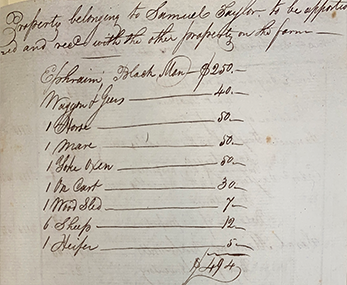 Property belonging to Samuel Taylor to be apporti
ed and with the other property on the farm —
Ephraim, Black Man — $250 —
Waggon & Geers — 40 —
1 Horse — 50 —
1 Mare — 50 —
1 Yoke Oxen — 50 —
1 Ox Cart — 30 —
1 Wood Sled — 7 —
6 Sheep — 12 —
1 Heifer — 5 —
$494